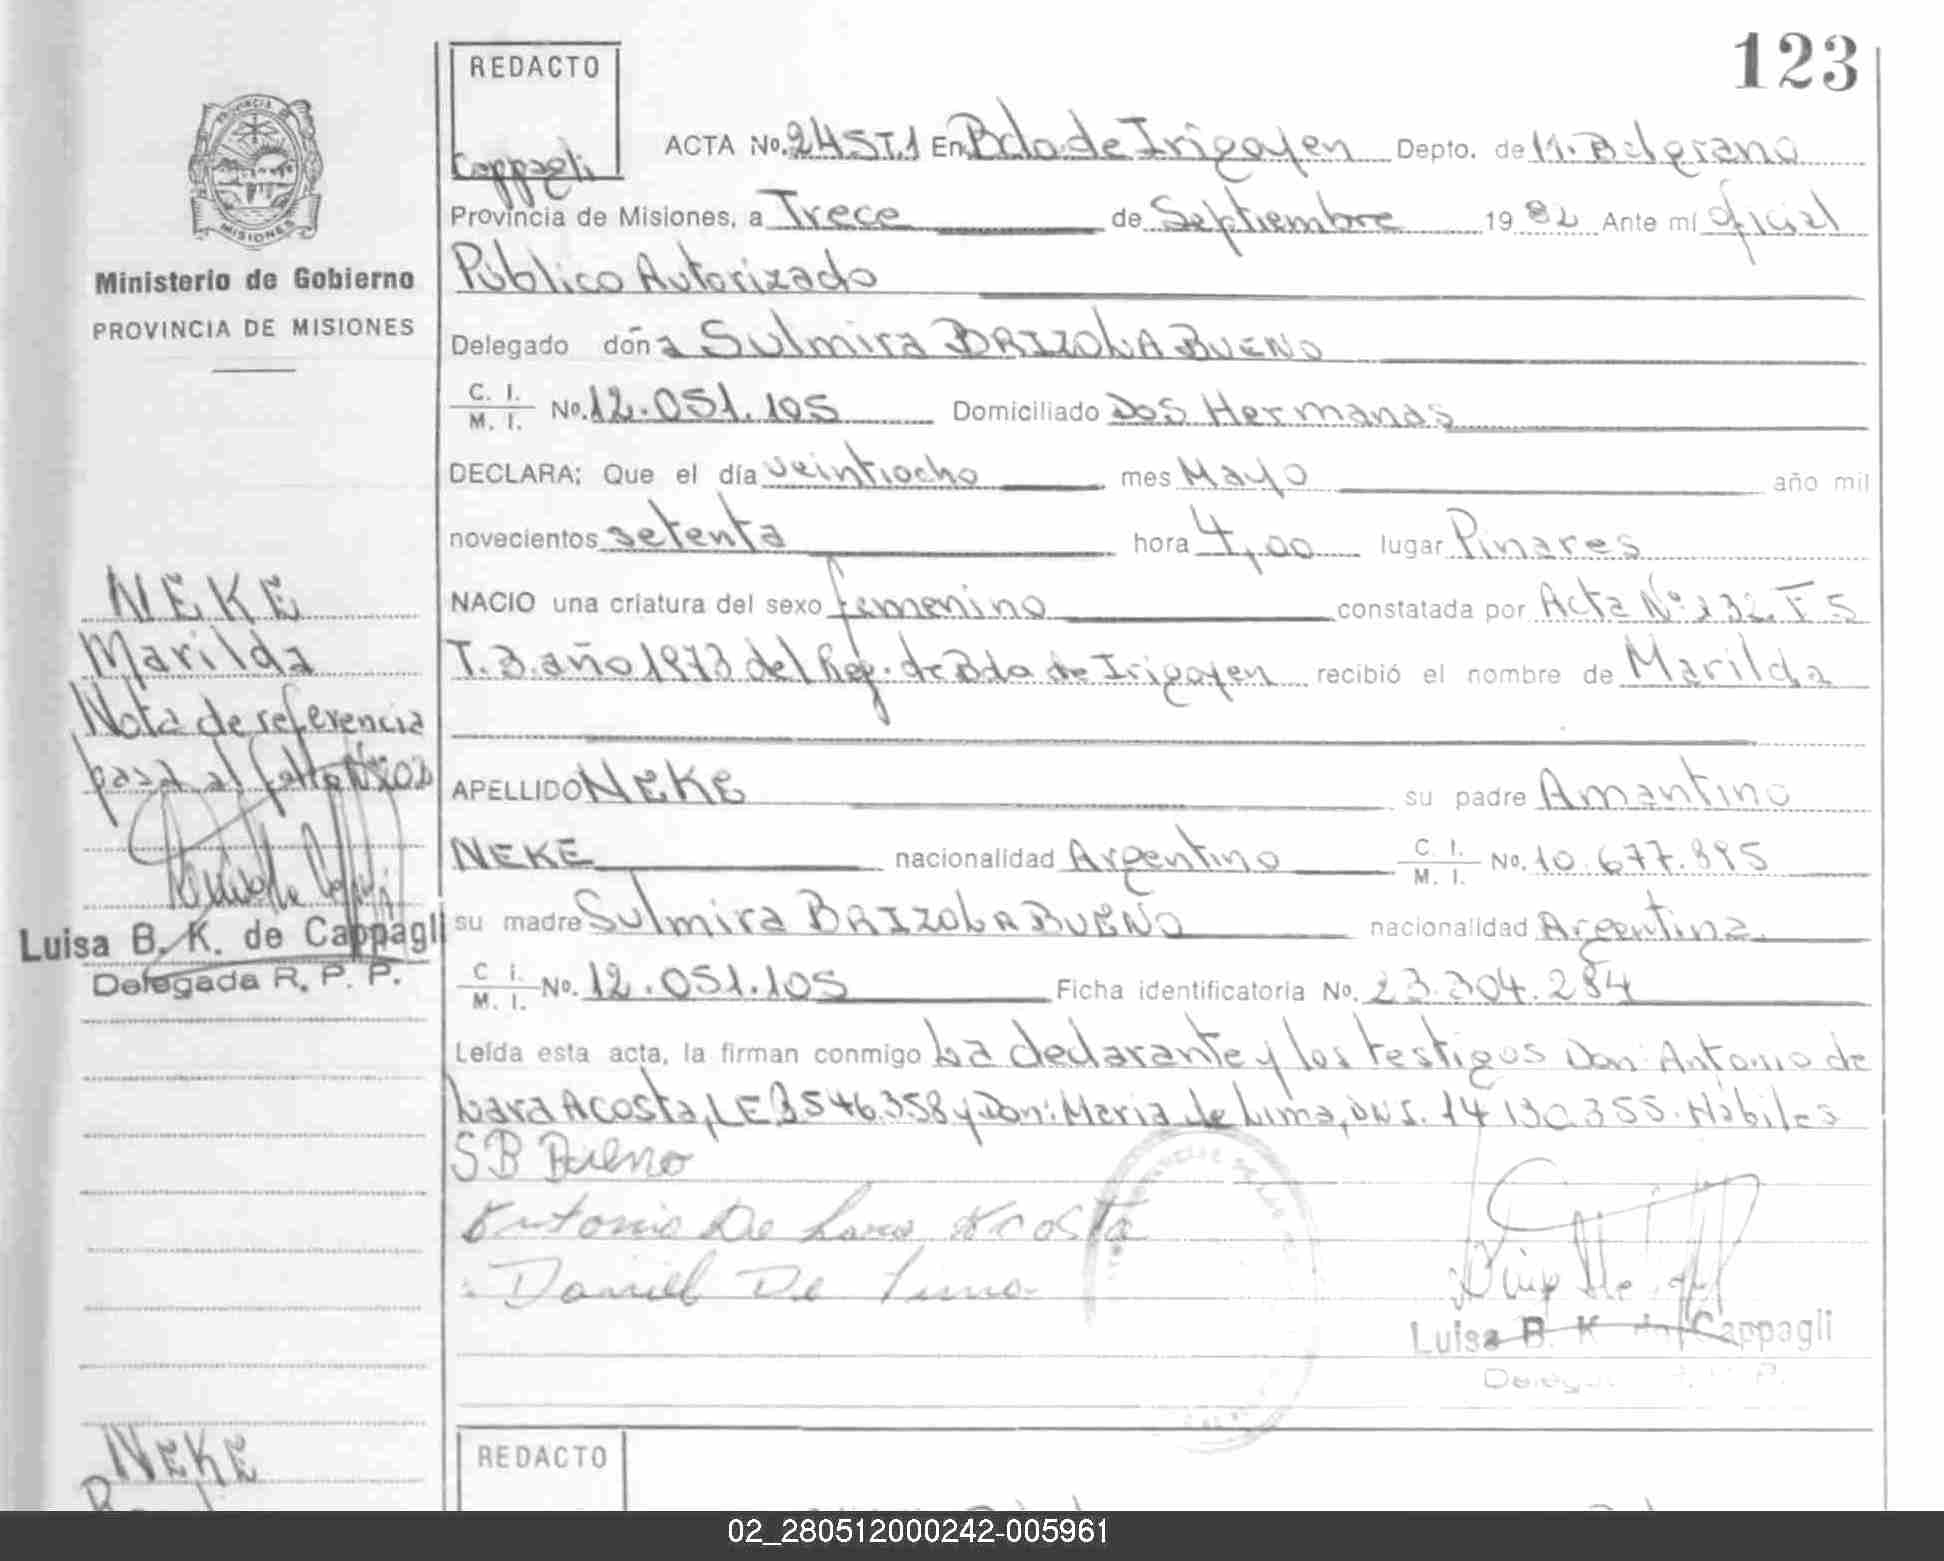 123
REDACTO
Cappagli
ACTA No. 245T.1 En Bdo de Irigoyen Depto. de M. Belgrano
Provincia de Misiones, a Trece de Septiembre 1982 Ante mí oficial
Público Autorizado
Delegado doña Sulmira BRIZOLA BUENO
C. I.
M. I. No. 12.051.105 Domiciliado Dos Hermanas
DECLARA; Que el día veintiocho mes Mayo año mil
novecientos setenta hora 4,00 lugar Pinares
NACIO una criatura del sexo femenino constatada por Acta Nº 132. F 5
T. 3. año 1973 del Reg. de Bdo de Irigoyen recibió el nombre de Marilda
APELLIDO NEKE su padre Amantino
NEKE nacionalidad Argentino C. I.
M. I. No. 10.677.895
su madre Sulmira BRIZOLA BUENO nacionalidad Argentina.
C. I.
M. I. No. 12.051.105 Ficha identificatoria No. 23.304.284
Leída esta acta, la firman conmigo La declarante y los testigos Don: Antonio de
Lara Acosta, LE 3546.358 y Don: Maria de Lima, DNI. 14130.355. Hábiles
SB Bueno
Antonio De Lara Acosta
Daniel De Lima
Luisa B. K. de Cappagli
PROVINCIA
MISIONES
Ministerio de Gobierno
PROVINCIA DE MISIONES
NEKE
Marilda
Nota de referencia
pasa al folio Nº 202
Luisa B. K. de Cappagli
Delegada R. P. P.
NEKE
REDACTO
02_280512000242-005961